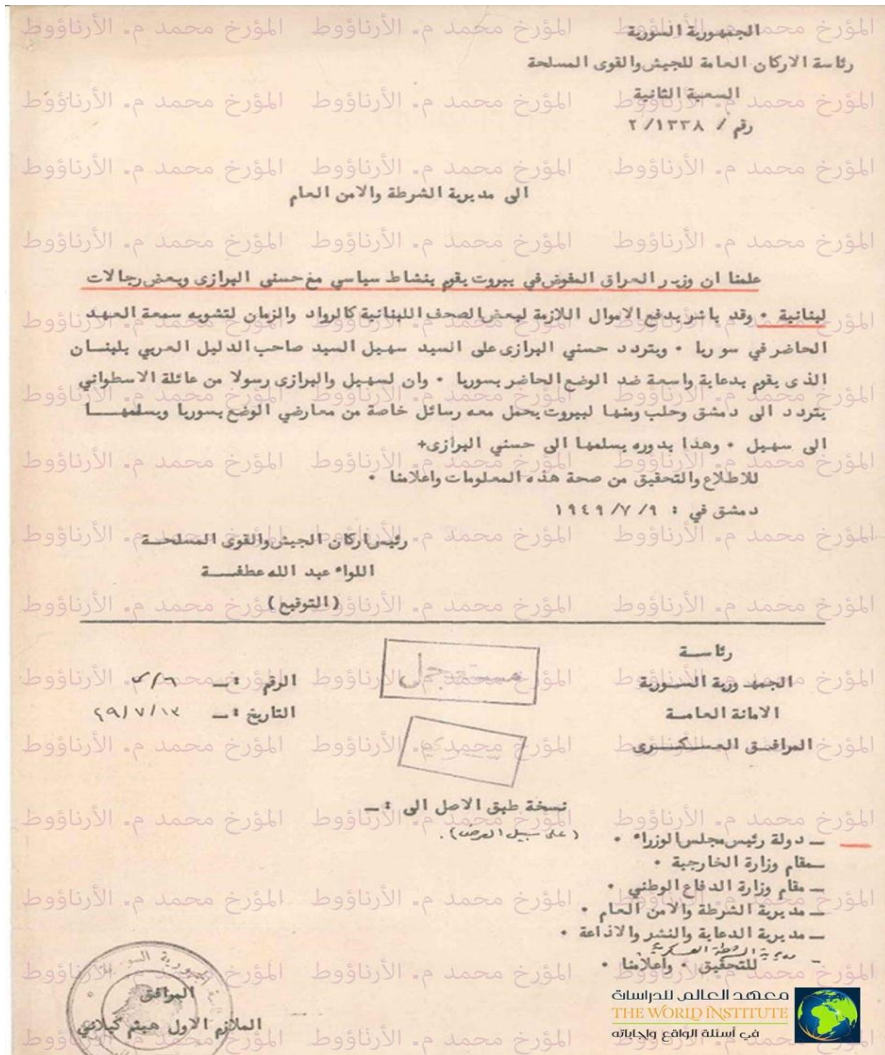 الجمهورية السورية
رئاسة الاركان العامة للجيش والقوى المسلحة
السعبة الثانية
رقم / ١٣٣٨/ ٢
الى مديرية الشرطة والامن العام
علمنا ان وزير العراق المفوض في بيروت يقوم بنشاط سياسي مع حسني البرازى وبعض رجالات
لبنانية • وقد باشر بدفع الاموال اللازمة لبعض الصحف اللبنانية كالرواد والزمان لتشويه سمعة العهد
الحاضر في سوريا • ويتردد حسني البرازى على السيد سهيل السيد صاحب الدليل العربي بلبنان
الذى يقوم بدعاية واسعة ضد الوضع الحاضر بسوريا • وان لسهيل والبرازى رسولا من عائلة الاسطواني
يتردد الى دمشق وحلب ومنها لبيروت يحمل معه رسائل خاصة من معارضي الوضع بسوريا ويسلمها
الى سهيل • وهذا بدوره يسلمها الى حسني البرازى+
للاطلاع والتحقيق من صحة هذه المعلومات واعلامنا •
دمشق في : ٩ /٧ /١٩٤٩
رئيس اركان الجيش والقوى المسلحة
اللواء عبد الله عطفة
(التوقيع)
رئاسة
الجمهورية السورية
الامانة العامة
المرافق العسكرى
مستعجل
الرقم :ـ
التاريخ :ـ ٤٩/٧/١٣
نسخة طبق الاصل الى :ـ
(على سبيل العرض).
ـ دولة رئيس مجلس الوزراء •
ـ مقام وزارة الخارجية •
ـ مقام وزارة الدفاع الوطني •
ـ مديرية الشرطة والامن العام •
ـ مديرية الدعاية والنشر والاذاعة •
ـ مديرية الشرطة العسكرية
للتحقيق • واعلامنا •
المرافق
الملازم الاول هيثم كيلاني
معهد العالم للدراسات
THE WORLD INSTITUTE
في أسئلة الواقع وإجاباته
المؤرخ محمد م. الأرناؤوط